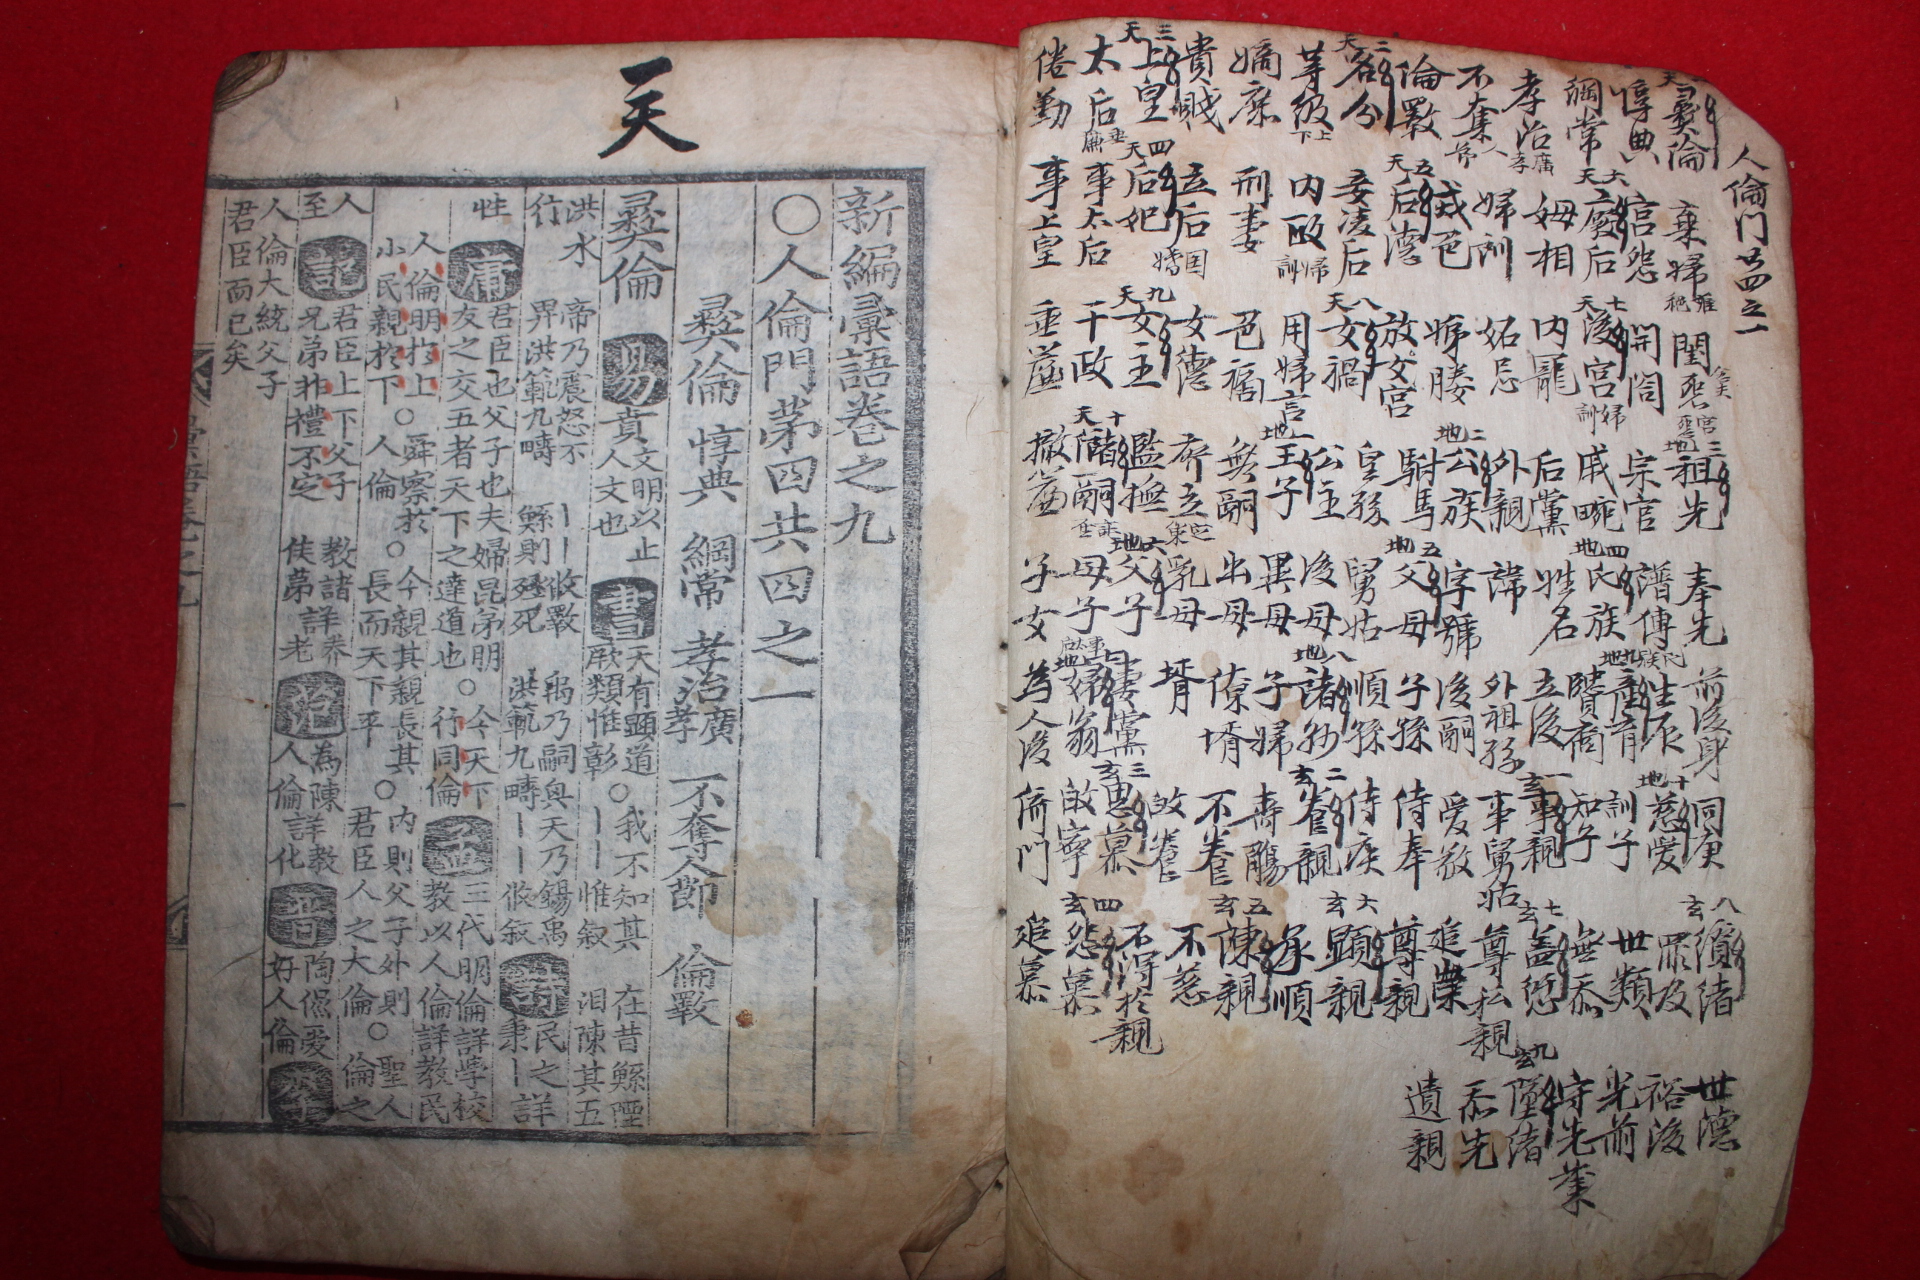 人倫門廿四之一
彛倫
惇典
綱常
孝治
不奪人節
倫斁
名分
等級
嫡庶
貴賤
上皇
太后
倦勤
棄婦
宮怨
廢后
姆相
婦訓
戒色
后德
妾凌后
內政
刑妻
立后
后妃
事太后
事上皇
閨怨
開閤
後宮
內寵
妬忌
娣媵
放文宮
女禍
用婦言
色禍
女德
女主
干政
垂簾
祖先
宗官
戚畹
后黨
外親
公族
駙馬
皇孫
公主
王子
無嗣
齊立
監撫
儲嗣
撤簾
奉先
譜傳
氏族
姓名
諱
字號
父母
舅姑
後母
異母
出母
乳母
父子
母子
子女
前後身
生辰
產育
賢裔
立後
外祖孫
後嗣
子孫
順孫
諸孫
子婦
僚壻
壻
妻黨
婦翁
為人後
同庚
慈愛
訓子
知子
事親
事舅姑
愛敬
侍奉
侍疾
養親
壽觴
不養
敀養
思慕
敀寧
倚門
纘緖
罪及
世類
無忝
盖愆
尊私親
追榮
尊親
顯親
承順
諫親
不慈
不得於親
怨慕
追慕
世德
裕後
光前
守先業
墮緖
忝先
遺親
天
新編彙語卷之九
○人倫門第四共四之一
彛倫 惇典 綱常 孝治廣孝 不奪人節 倫斁
彛倫 易 賁文明以止人文也 書 天有顯道厥類惟彰○我不知其丨丨惟敘 在昔鯀陻
洪水汩陳其五行帝乃震怒不畀洪範九疇丨丨攸斁鯀則殛死禹乃嗣興天乃錫禹洪範九疇丨丨攸敘 詩 民之秉丨詳
性 庸 君臣也父子也夫婦昆弟朋友之交五者天下之達道也○今天下行同倫 孟 三代明倫詳學校教以人倫詳教民
人倫明於上小民親於下○舜察於人倫○今親其親長其長而天下平○內則父子外則君臣人之大倫○聖人倫之
至 記 君臣上下父子兄弟非禮不定 教諸詳養老 為陳詳教人倫詳化 晉 陶㬎愛好人倫
人倫大統父子君臣而已矣